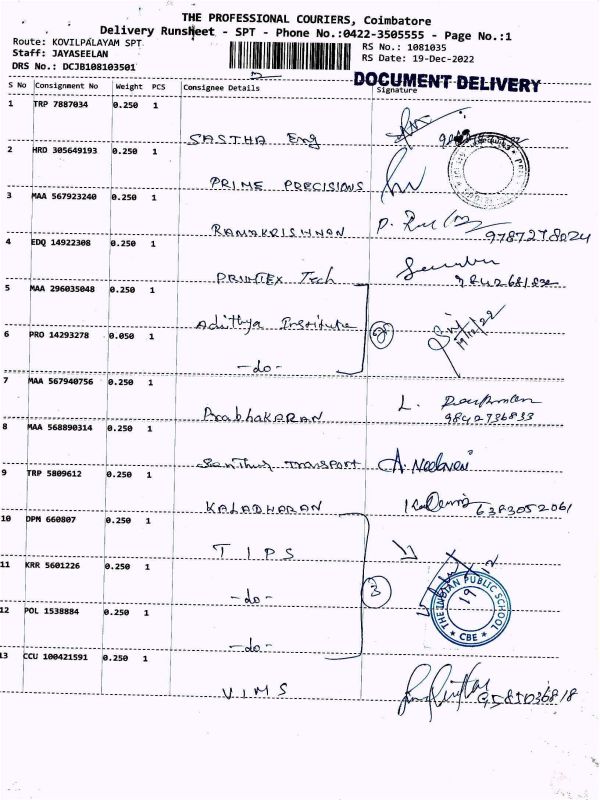 THE PROFESSIONAL COURIERS, Coimbatore
Delivery Runsheet - SPT - Phone No.:0422-3505555 - Page No.:1
Route: KOVILPALAYAM SPT
RS No.: 1081035
Staff: JAYASEELAN
RS Date: 19-Dec-2022
DRS No.: DCJB108103501
DOCUMENT DELIVERY
S No Consignment No Weight PCS Consignee Details Signature
1 TRP 7887034 0.250 1
SASTHA Eng
2 HRD 305649193 0.250 1
PRIME PRECISIONS
3 MAA 567923240 0.250 1
RAMAKRISHNAN 9787278024
4 EDQ 14922308 0.250 1
PRINTEX Tech
5 MAA 296035048 0.250 1
Adithya Institute
19/12/22
6 PRO 14293278 0.050 1
-do-
7 MAA 567940756 0.250 1
Prabhakaran L.
9842736833
8 MAA 568890314 0.250 1
TRANSPORT A.
9 TRP 5809612 0.250 1
KALADHARAN 6383052061
10 DPM 660807 0.250 1
TIPS
11 KRR 5601226 0.250 1
-do- 3
THE INDIAN PUBLIC SCHOOL
★ CBE ★
12 POL 1538884 0.250 1
-do-
13 CCU 100421591 0.250 1
VIMS